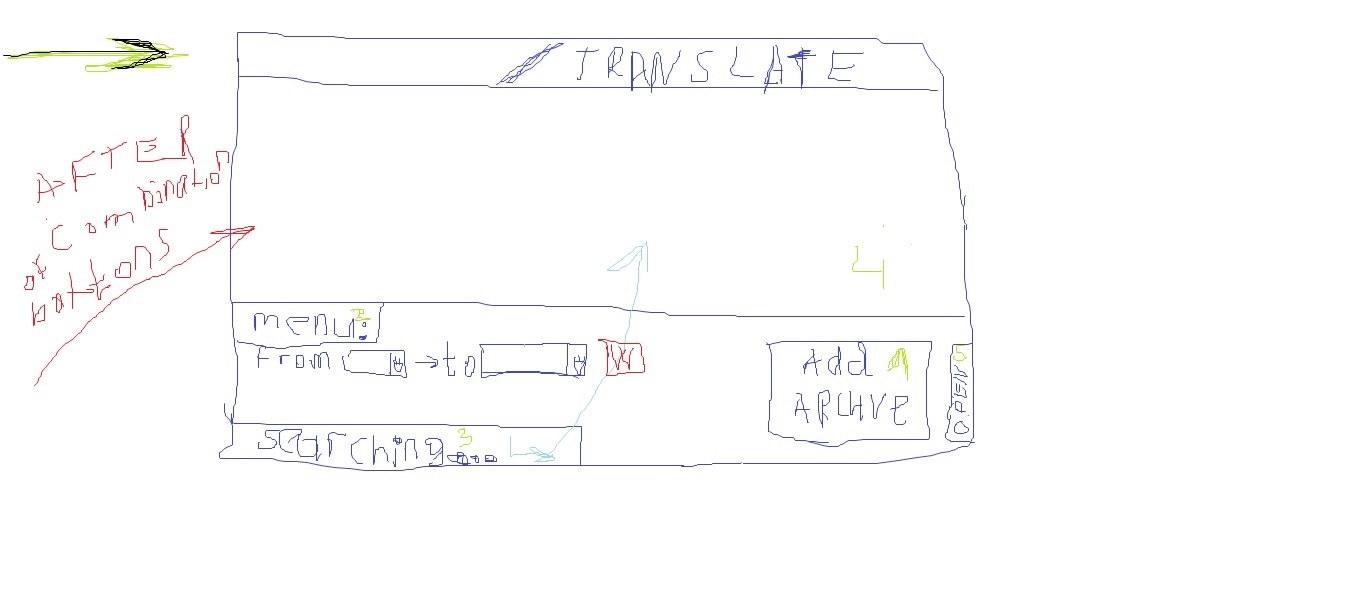 TRANSLATE
AFTER
of Combination
bottons
4
menu: 2
from → to W
Add 1
ARCHVE
5
OPEN
searching.... 3